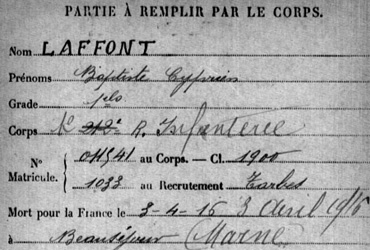 PARTIE À REMPLIR PAR LE CORPS.
Nom LAFFONT
Prénoms Baptiste Cyprien
Grade
Corps R. Infanterie
N° Matricule. 011541 au Corps. — Cl. 1900
1033 au Recrutement Tarbes
Mort pour la France le 3-4-15 3 Avril 1915
à Beauséjour Marne